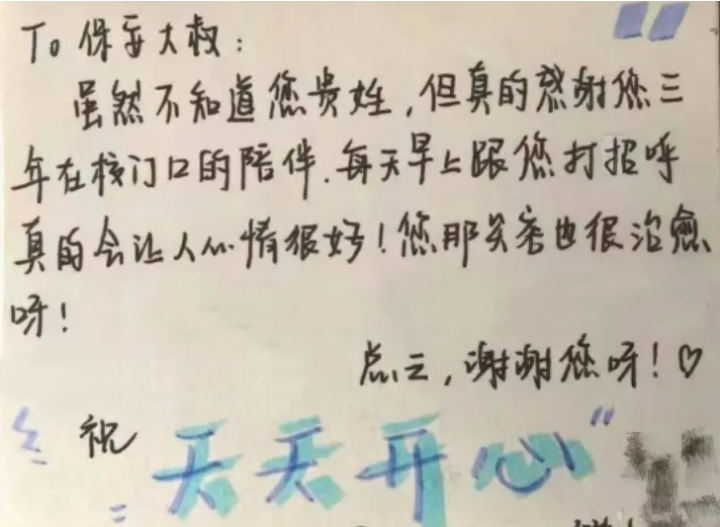 To 保安大叔：
虽然不知道您贵姓，但真的感谢您三
年在校门口的陪伴．每天早上跟您打招呼
真的会让人心情很好！您那笑容也很治愈
呀！
总之，谢谢您呀！♡
祝
天天开心